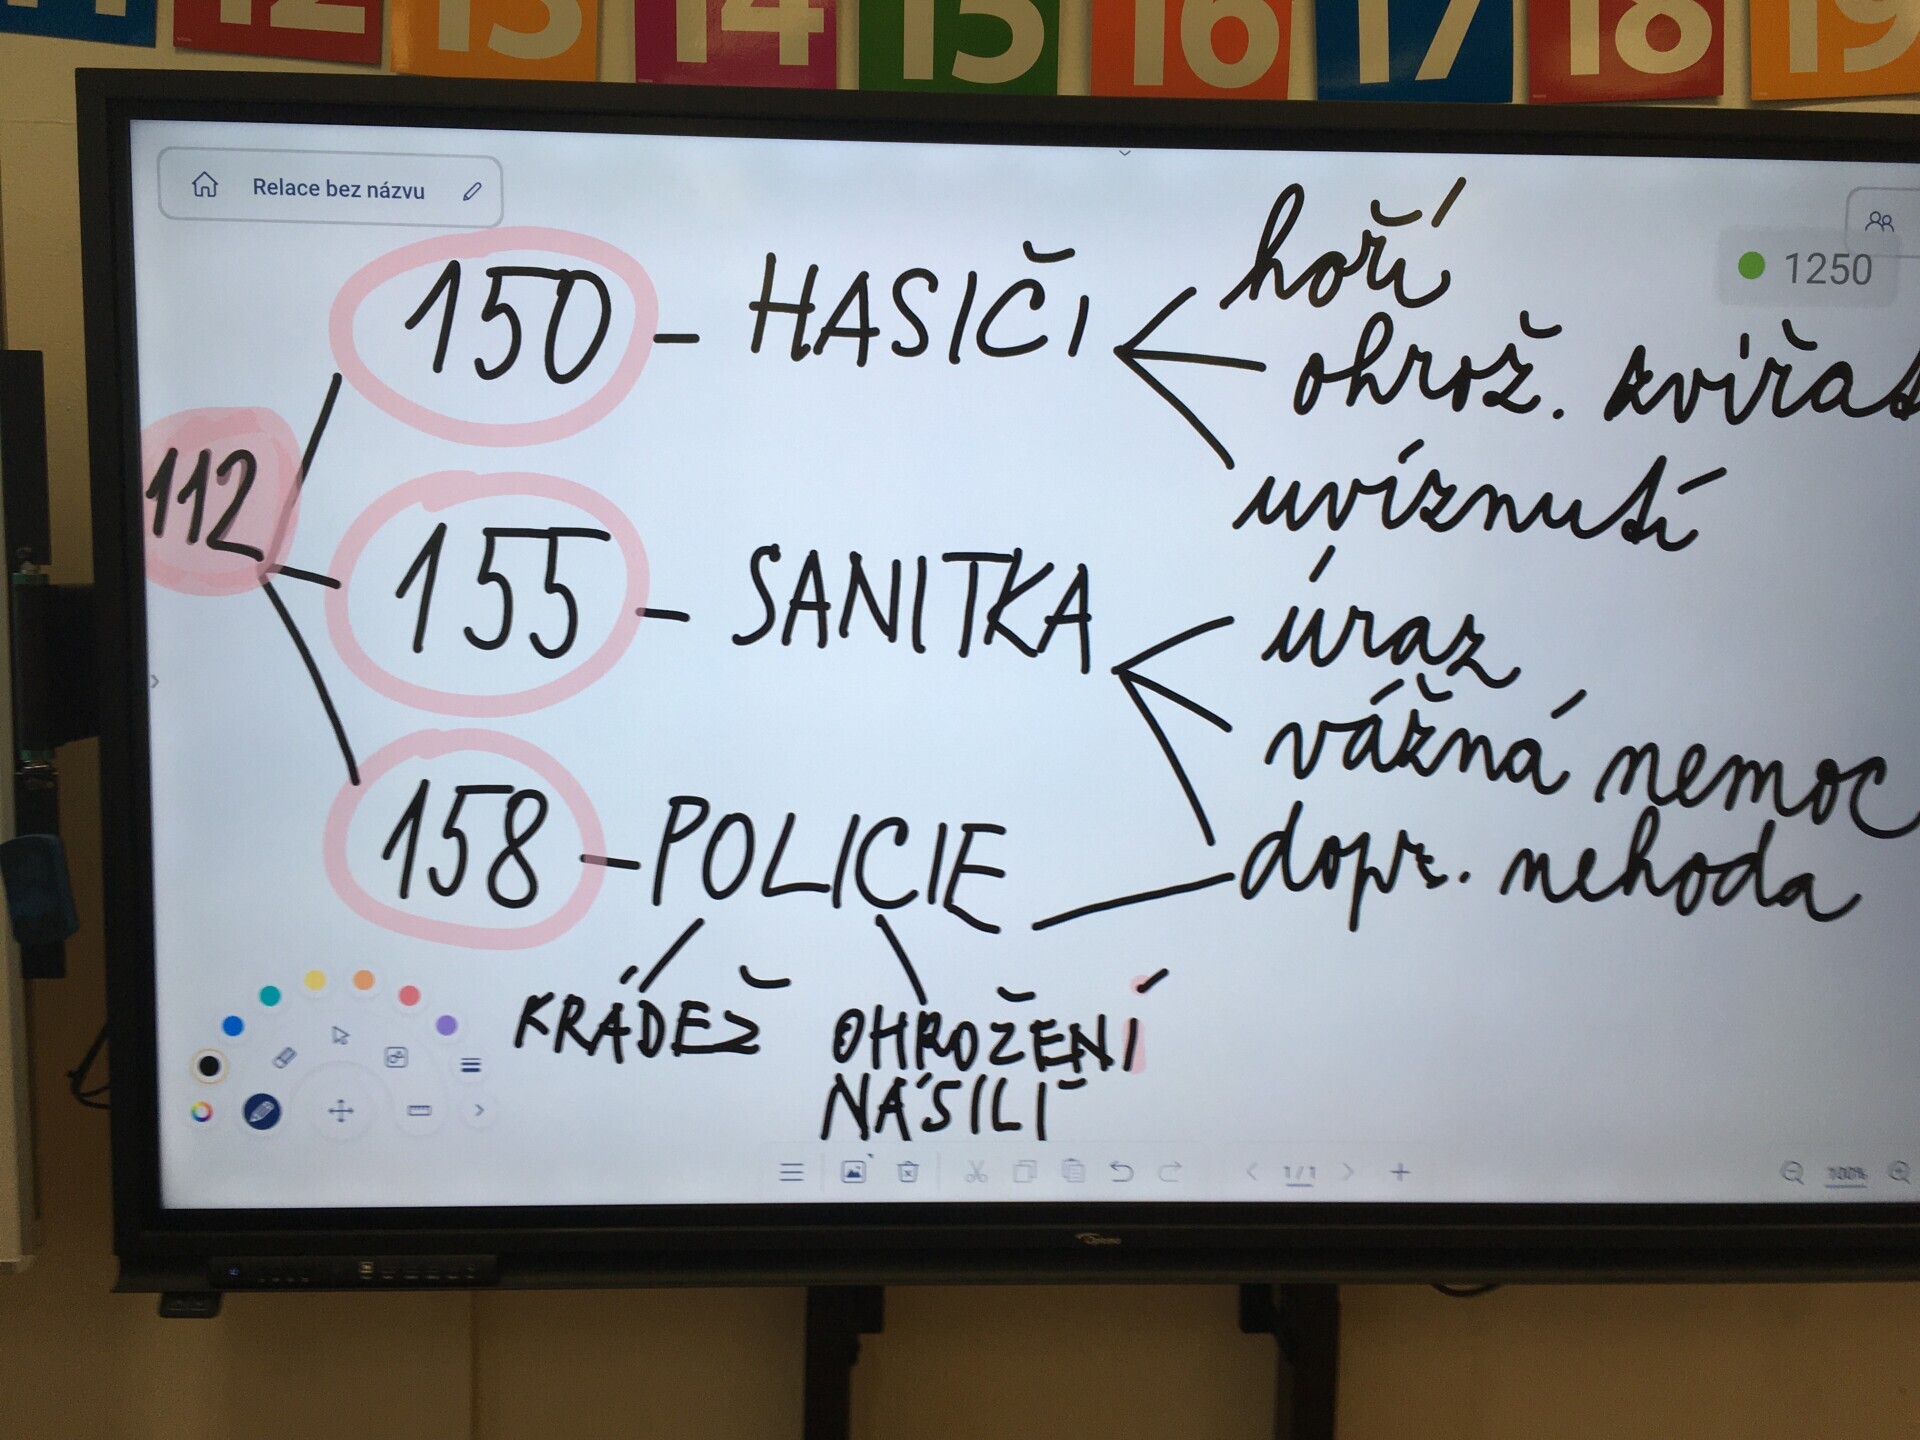 12 13 14 15 16 17 18 19
Relace bez názvu
1250
112
150 - HASIČI
hoří
ohrož. zvířat
uvíznutí
155 - SANITKA
úraz
vážná nemoc
dopr. nehoda
158 - POLICIE
KRÁDEŽ
OHROŽENÍ
NÁSILÍ
1/1
100%
Optoma